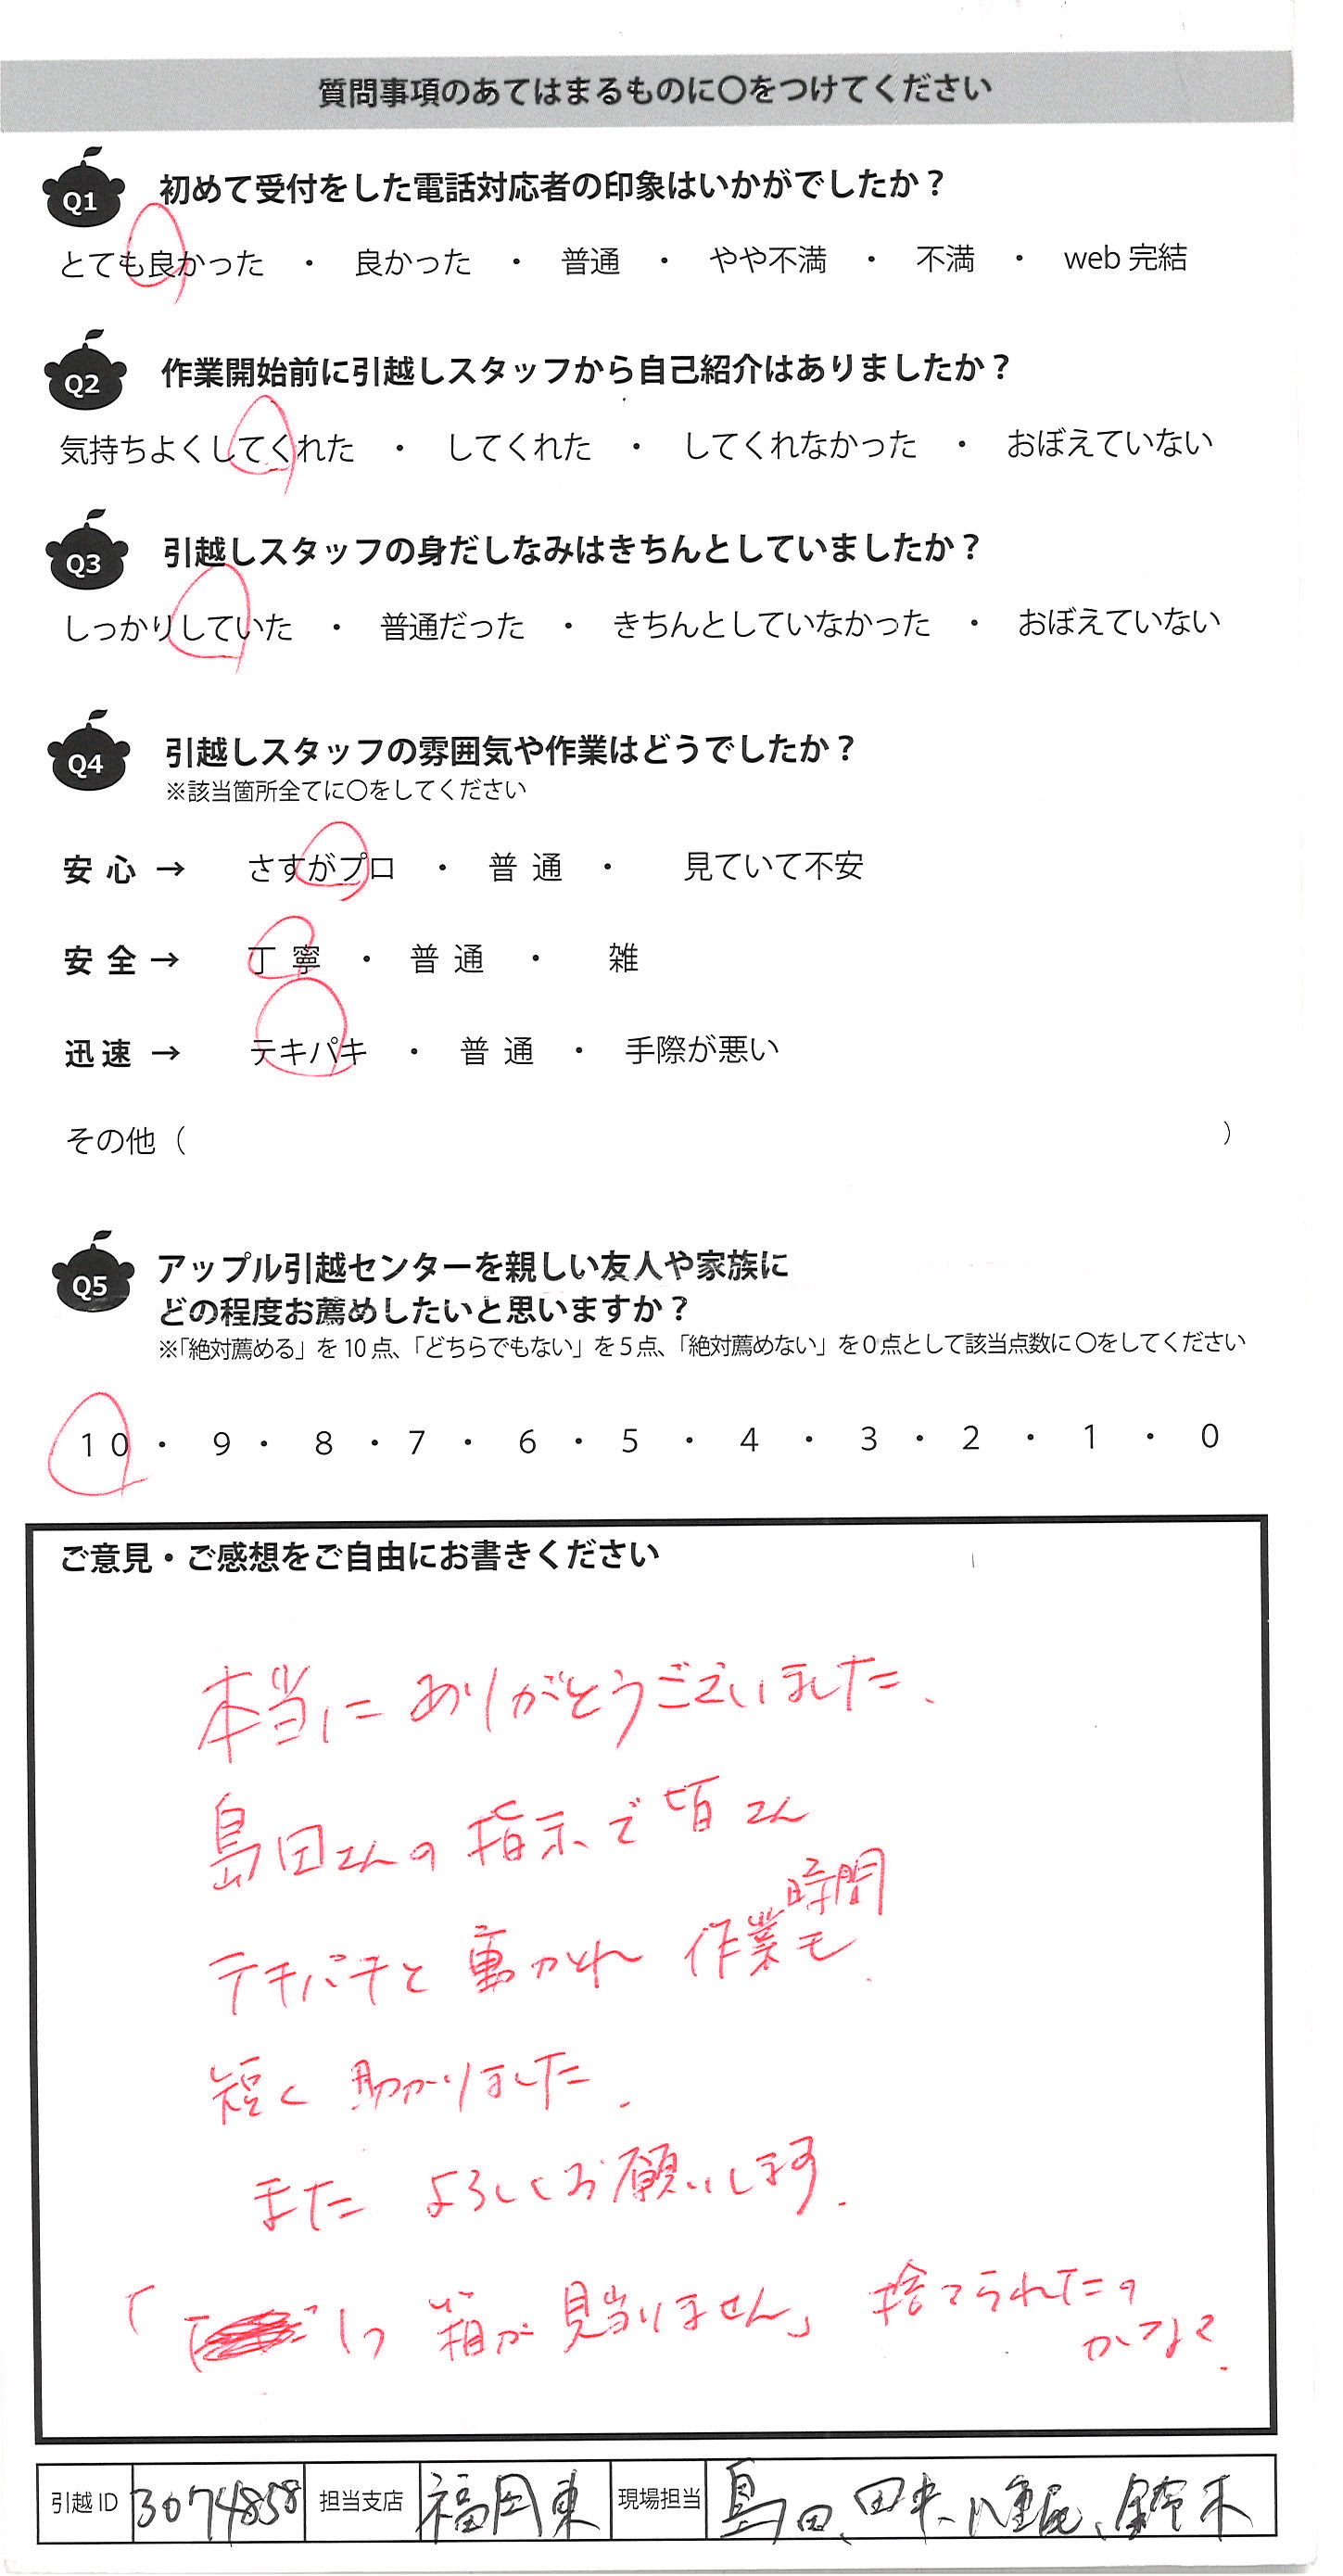 質問事項のあてはまるものに〇をつけてください
Q1 初めて受付をした電話対応者の印象はいかがでしたか？
とても良かった ・ 良かった ・ 普通 ・ やや不満 ・ 不満 ・ web 完結
Q2 作業開始前に引越しスタッフから自己紹介はありましたか？
気持ちよくしてくれた ・ してくれた ・ してくれなかった ・ おぼえていない
Q3 引越しスタッフの身だしなみはきちんとしていましたか？
しっかりしていた ・ 普通だった ・ きちんとしていなかった ・ おぼえていない
Q4 引越しスタッフの雰囲気や作業はどうでしたか？
※該当箇所全てに〇をしてください
安心 → さすがプロ ・ 普通 ・ 見ていて不安
安全 → 丁寧 ・ 普通 ・ 雑
迅速 → テキパキ ・ 普通 ・ 手際が悪い
その他（ ）
Q5 アップル引越センターを親しい友人や家族に
どの程度お薦めしたいと思いますか？
※「絶対薦める」を 10 点、「どちらでもない」を 5 点、「絶対薦めない」を 0 点として該当点数に 〇をしてください
10 ・ 9 ・ 8 ・ 7 ・ 6 ・ 5 ・ 4 ・ 3 ・ 2 ・ 1 ・ 0
ご意見・ご感想をご自由にお書きください
本当にありがとうございました、
島田さんの指示で皆さん
テキパキと動かれ 作業時間も
短く 助かりました.
また よろしくお願いします.
箱が見当りません」 捨てられたの
かなぁ?
引越 ID 3074858 担当支店 福岡東 現場担当 島田、田中、鈴木